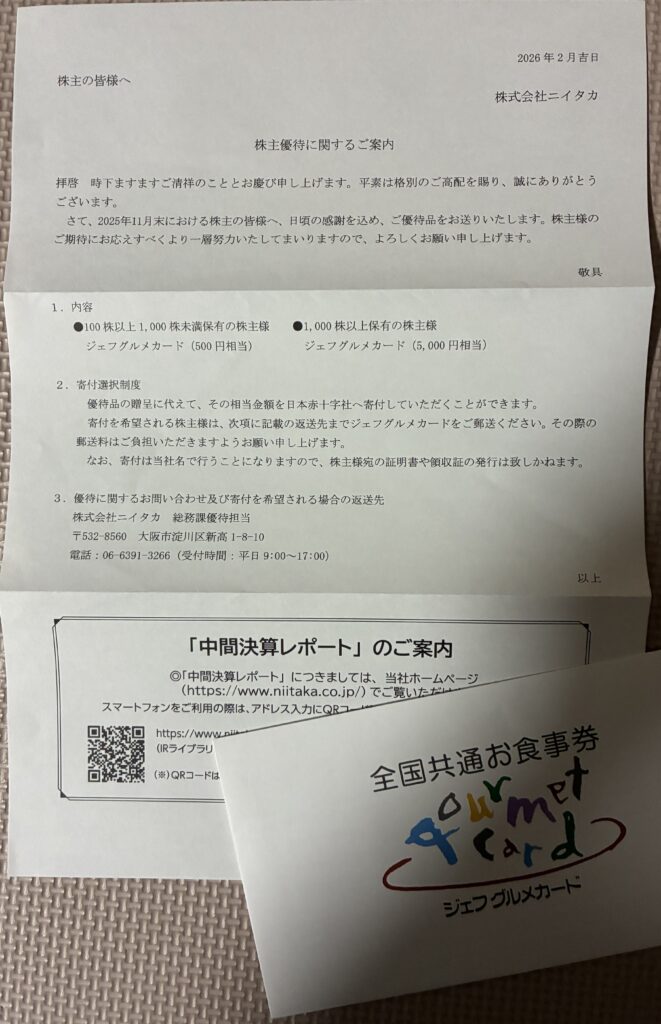 2026年2月吉日
株主の皆様へ
株式会社ニイタカ
株主優待に関するご案内
拝啓　時下ますますご清祥のこととお慶び申し上げます。平素は格別のご高配を賜り、誠にありがとう
ございます。
さて、2025年11月末における株主の皆様へ、日頃の感謝を込め、ご優待品をお送りいたします。株主様の
ご期待にお応えすべくより一層努力いたしてまいりますので、よろしくお願い申し上げます。
敬具
１．内容
●100株以上1,000株未満保有の株主様　●1,000株以上保有の株主様
ジェフグルメカード（500円相当）　ジェフグルメカード（5,000円相当）
２．寄付選択制度
優待品の贈呈に代えて、その相当金額を日本赤十字社へ寄付していただくことができます。
寄付を希望される株主様は、次項に記載の返送先までジェフグルメカードをご郵送ください。その際の
郵送料はご負担いただきますようお願い申し上げます。
なお、寄付は当社名で行うことになりますので、株主様宛の証明書や領収証の発行は致しかねます。
３．優待に関するお問い合わせ及び寄付を希望される場合の返送先
株式会社ニイタカ　総務課優待担当
〒532-8560　大阪市淀川区新高1-8-10
電話：06-6391-3266（受付時間：平日9:00～17:00）
以上
「中間決算レポート」のご案内
◎「中間決算レポート」につきましては、当社ホームページ
（https://www.niitaka.co.jp/）でご覧いただけ
スマートフォンをご利用の際は、アドレス入力にQRコー
https://www.niit
（IRライブラリ
（※）QRコードは
全国共通お食事券
gourmet
card
ジェフグルメカード